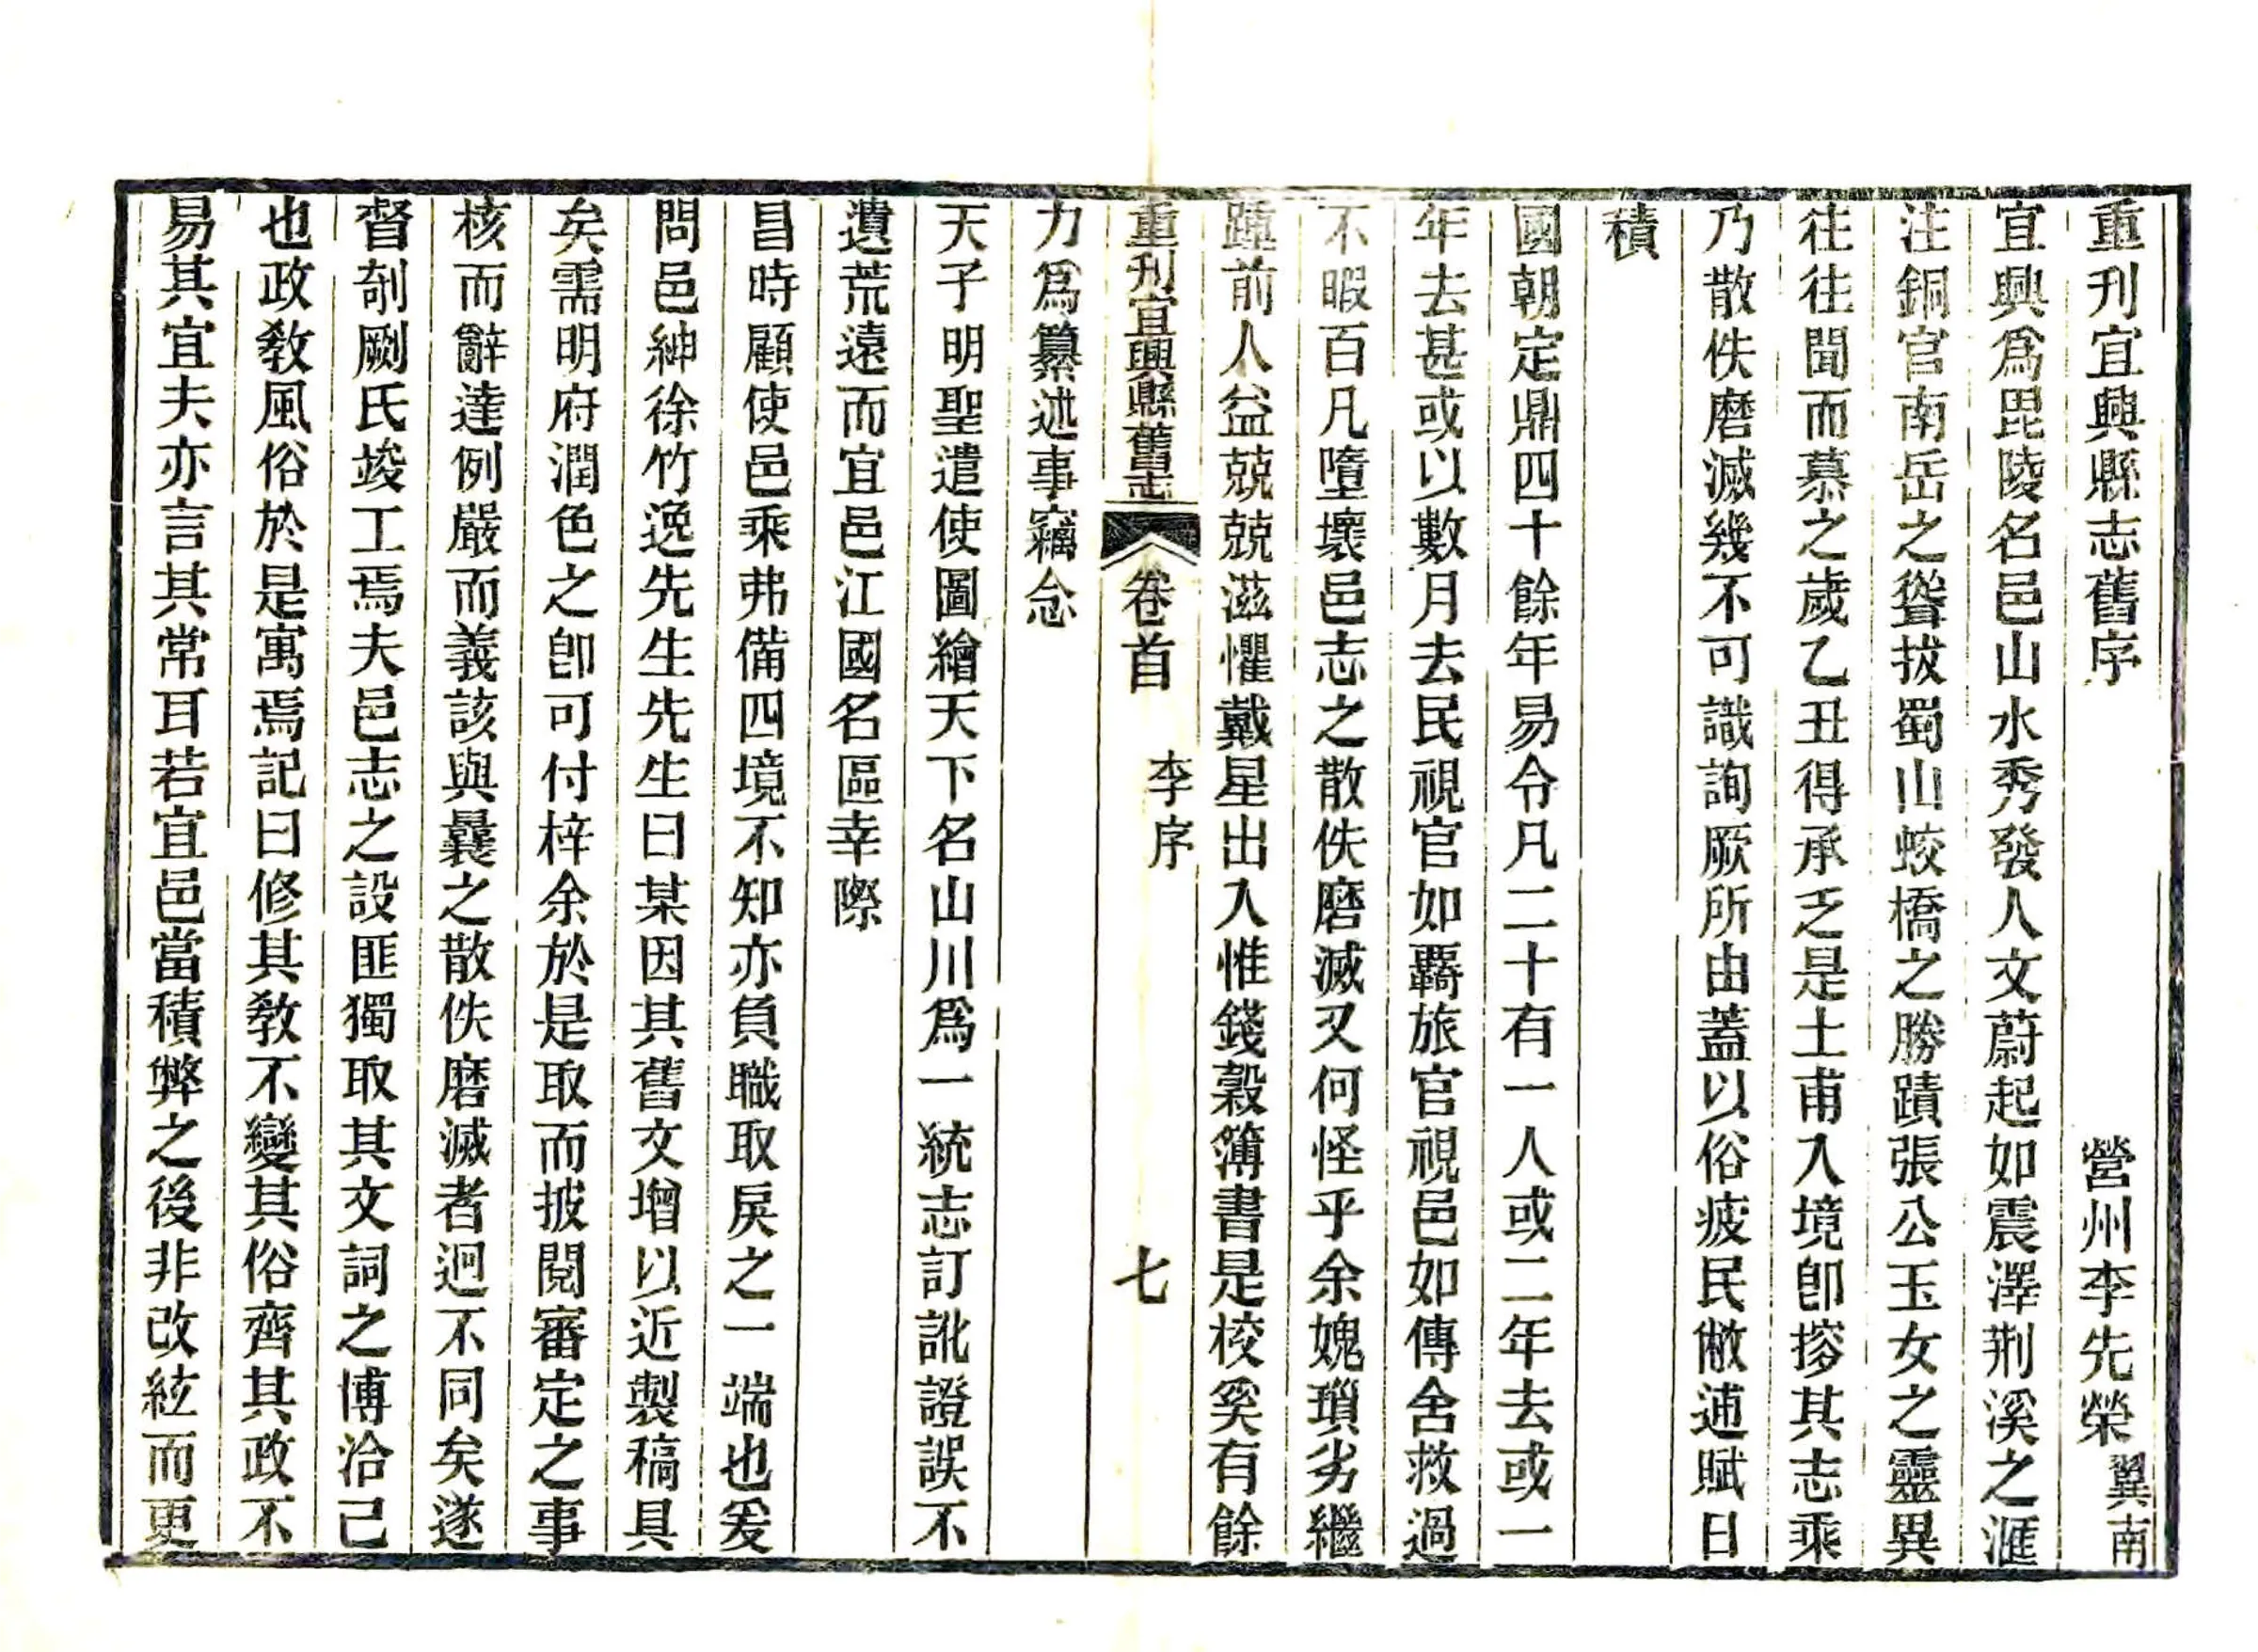 重刊宜興縣志舊序
營州李先榮翼南
宜興爲毘陵名邑山水秀發人文蔚起如震澤荆溪之滙
注銅官南岳之聳拔蜀山蛟橋之勝蹟張公玉女之靈異
往往聞而慕之歲乙丑得承乏是土甫入境卽摉其志乘
乃散佚磨滅幾不可識詢厥所由蓋以俗疲民敝逋賦日
積
國朝定鼎四十餘年易令凡二十有一人或二年去或一
年去甚或以數月去民視官如覊旅官視邑如傳舍救過
不暇百凡墮壞邑志之散佚磨滅又何怪乎余媿瑣劣繼
踵前人益兢兢滋懼戴星出入惟錢穀簿書是校奚有餘
重刊宜興縣舊志
卷首
李序
七
力爲纂述事竊念
天子明聖遣使圖繪天下名山川爲一統志訂訛證誤不
遺荒遠而宜邑江國名區幸際
昌時顧使邑乘弗備四境不知亦負職取戾之一端也爰
問邑紳徐竹逸先生先生曰某因其舊文增以近製稿具
矣需明府潤色之卽可付梓余於是取而披閱審定之事
核而辭達例嚴而義該與曩之散佚磨滅者迥不同矣遂
督剞劂氏竣工焉夫邑志之設匪獨取其文詞之博洽已
也政教風俗於是寓焉記曰修其教不變其俗齊其政不
易其宜夫亦言其常耳若宜邑當積弊之後非改絃而更